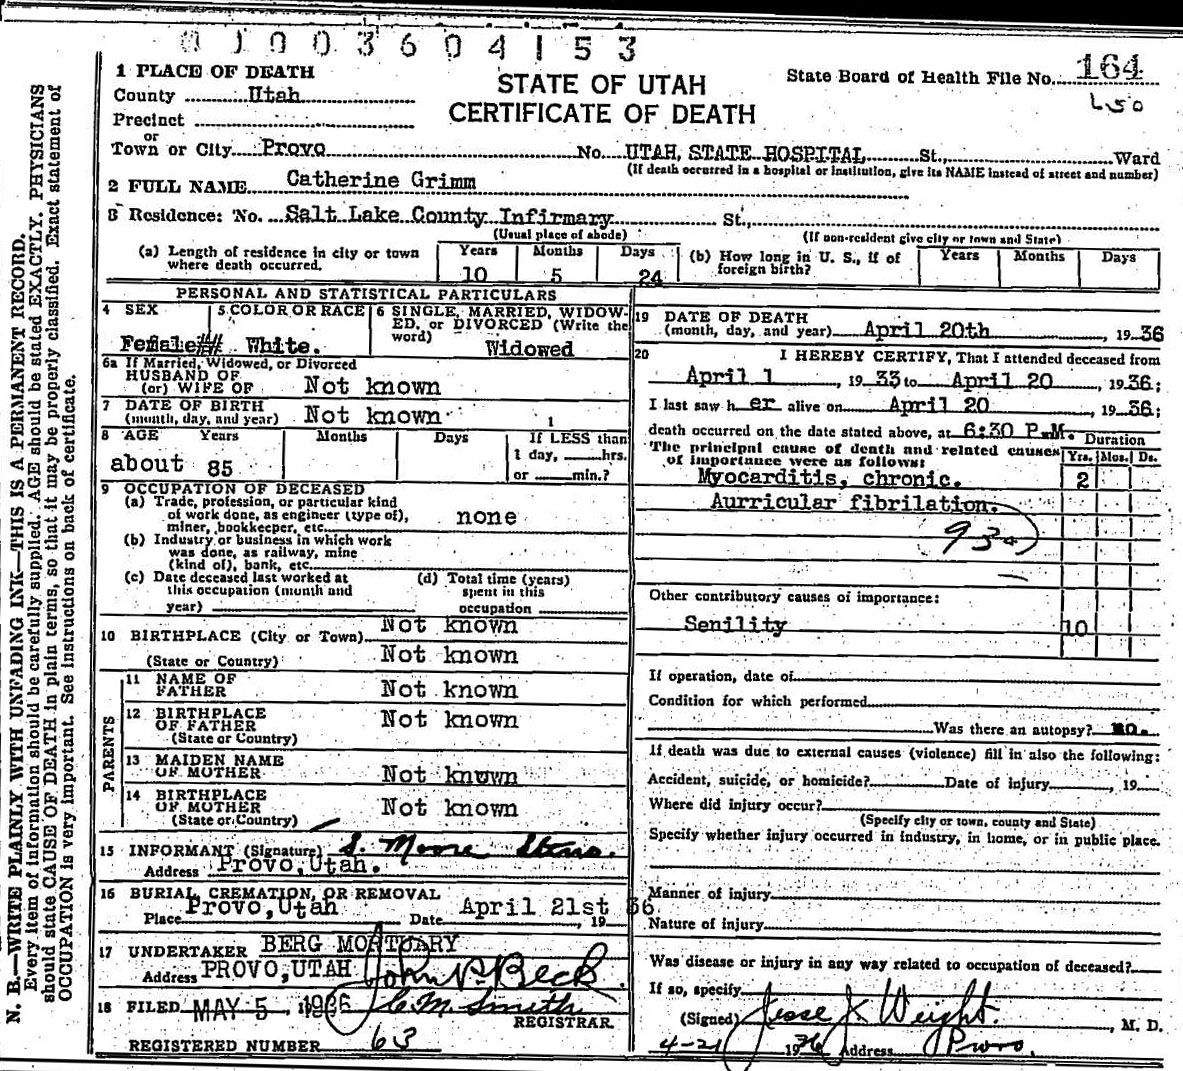 01003604153
1 PLACE OF DEATH
County Utah
Precinct
or
Town or City Provo No. UTAH STATE HOSPITAL St., Ward
STATE OF UTAH
CERTIFICATE OF DEATH
State Board of Health File No. 164
(If death occurred in a hospital or institution, give its NAME instead of street and number)
2 FULL NAME Catherine Grimm
3 Residence: No. Salt Lake County Infirmary St.,
(Usual place of abode) (If non-resident give city or town and State)
(a) Length of residence in city or town where death occurred. Years 10 Months 5 Days 24
(b) How long in U. S., if of foreign birth? Years Months Days
PERSONAL AND STATISTICAL PARTICULARS
4 SEX Female## 5 COLOR OR RACE White. 6 SINGLE, MARRIED, WIDOWED, or DIVORCED (Write the word) Widowed
6a If Married, Widowed, or Divorced
HUSBAND OF
(or) WIFE OF Not known
7 DATE OF BIRTH
(month, day, and year) Not known
8 AGE Years Months Days If LESS than
1 day, hrs.
or min.?
about 85
9 OCCUPATION OF DECEASED
(a) Trade, profession, or particular kind
of work done, as engineer (type of),
miner, bookkeeper, etc. none
(b) Industry or business in which work
was done, as railway, mine
(kind of), bank, etc.
(c) Date deceased last worked at
this occupation (month and
year)
(d) Total time (years)
spent in this
occupation
10 BIRTHPLACE (City or Town) Not known
(State or Country) Not known
PARENTS
11 NAME OF
FATHER Not known
12 BIRTHPLACE
OF FATHER Not known
(State or Country)
13 MAIDEN NAME
OF MOTHER Not known
14 BIRTHPLACE
OF MOTHER Not known
(State or Country)
15 INFORMANT (Signature) S. Moore
Address Provo, Utah.
16 BURIAL, CREMATION, OR REMOVAL
Place Provo, Utah Date April 21st, 19 36.
17 UNDERTAKER BERG MORTUARY
Address PROVO, UTAH John P. Beck
18 FILED MAY 5, 1936 C. M. Smith
REGISTRAR.
REGISTERED NUMBER 63
19 DATE OF DEATH
(month, day, and year) April 20th 19 36
20 I HEREBY CERTIFY, That I attended deceased from
April 1, 19 33 to April 20, 19 36;
I last saw h er alive on April 20 19 36;
death occurred on the date stated above, at 6:30 P.M.
The principal cause of death and related causes
of importance were as follows:
Duration
Yrs. Mos. Ds.
Myocarditis, chronic. 2
Aurricular fibrilation.
Other contributory causes of importance:
Senility 10
If operation, date of
Condition for which performed
Was there an autopsy? no.
If death was due to external causes (violence) fill in also the following:
Accident, suicide, or homicide? Date of injury, 19
Where did injury occur?
(Specify city or town, county and State)
Specify whether injury occurred in industry, in home, or in public place.
Manner of injury
Nature of injury
Was disease or injury in any way related to occupation of deceased?
If so, specify
(Signed) Jesse J. Weight. , M. D.
4-21 1936 Address Provo.
N. B.—WRITE PLAINLY WITH UNFADING INK—THIS IS A PERMANENT RECORD.
Every item of information should be carefully supplied. AGE should be stated EXACTLY. PHYSICIANS
should state CAUSE OF DEATH in plain terms, so that it may be properly classified. Exact statement of
OCCUPATION is very important. See instructions on back of certificate.